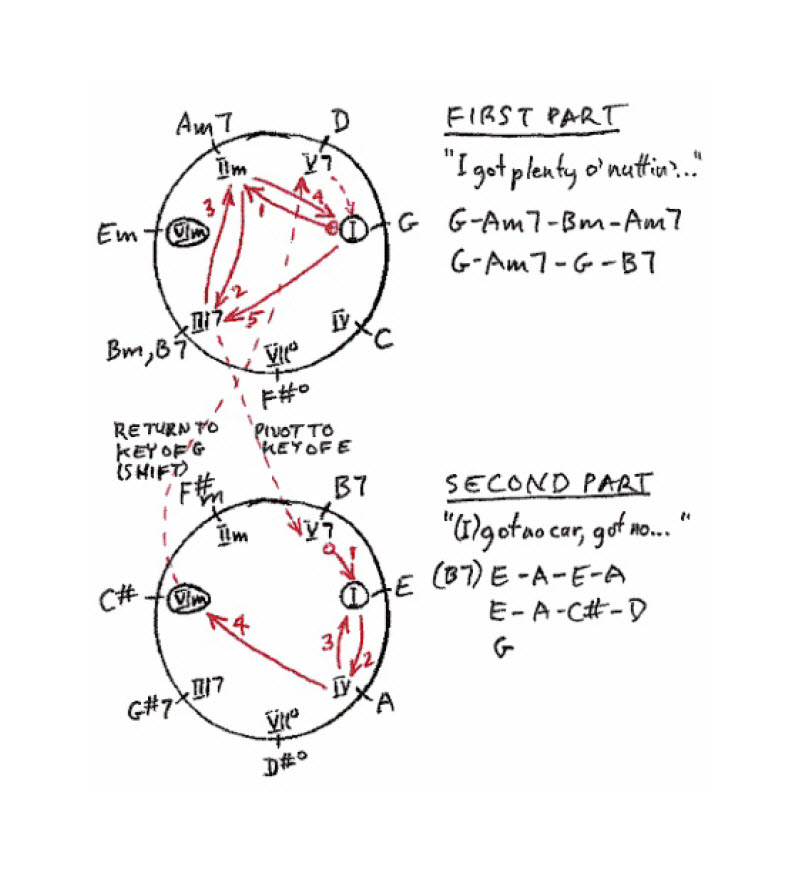 Am7
D
FIRST PART
IIm
V7
"I got plenty o' nuttin'..."
3
1
4
Em
VIm
0
I
G
G-Am7-Bm-Am7
G-Am7-G-B7
2
III7
5
IV
C
Bm, B7
VII°
F#°
RETURN TO
KEY OF G
(SHIFT)
PIVOT TO
KEY OF E
F#m
B7
SECOND PART
IIm
V7
"(I) got no car, got no..."
0
1
(B7) E-A-E-A
C#
VIm
I
E
E-A-C#-D
4
3
2
G
G#7
III7
IV
A
VII°
D#°